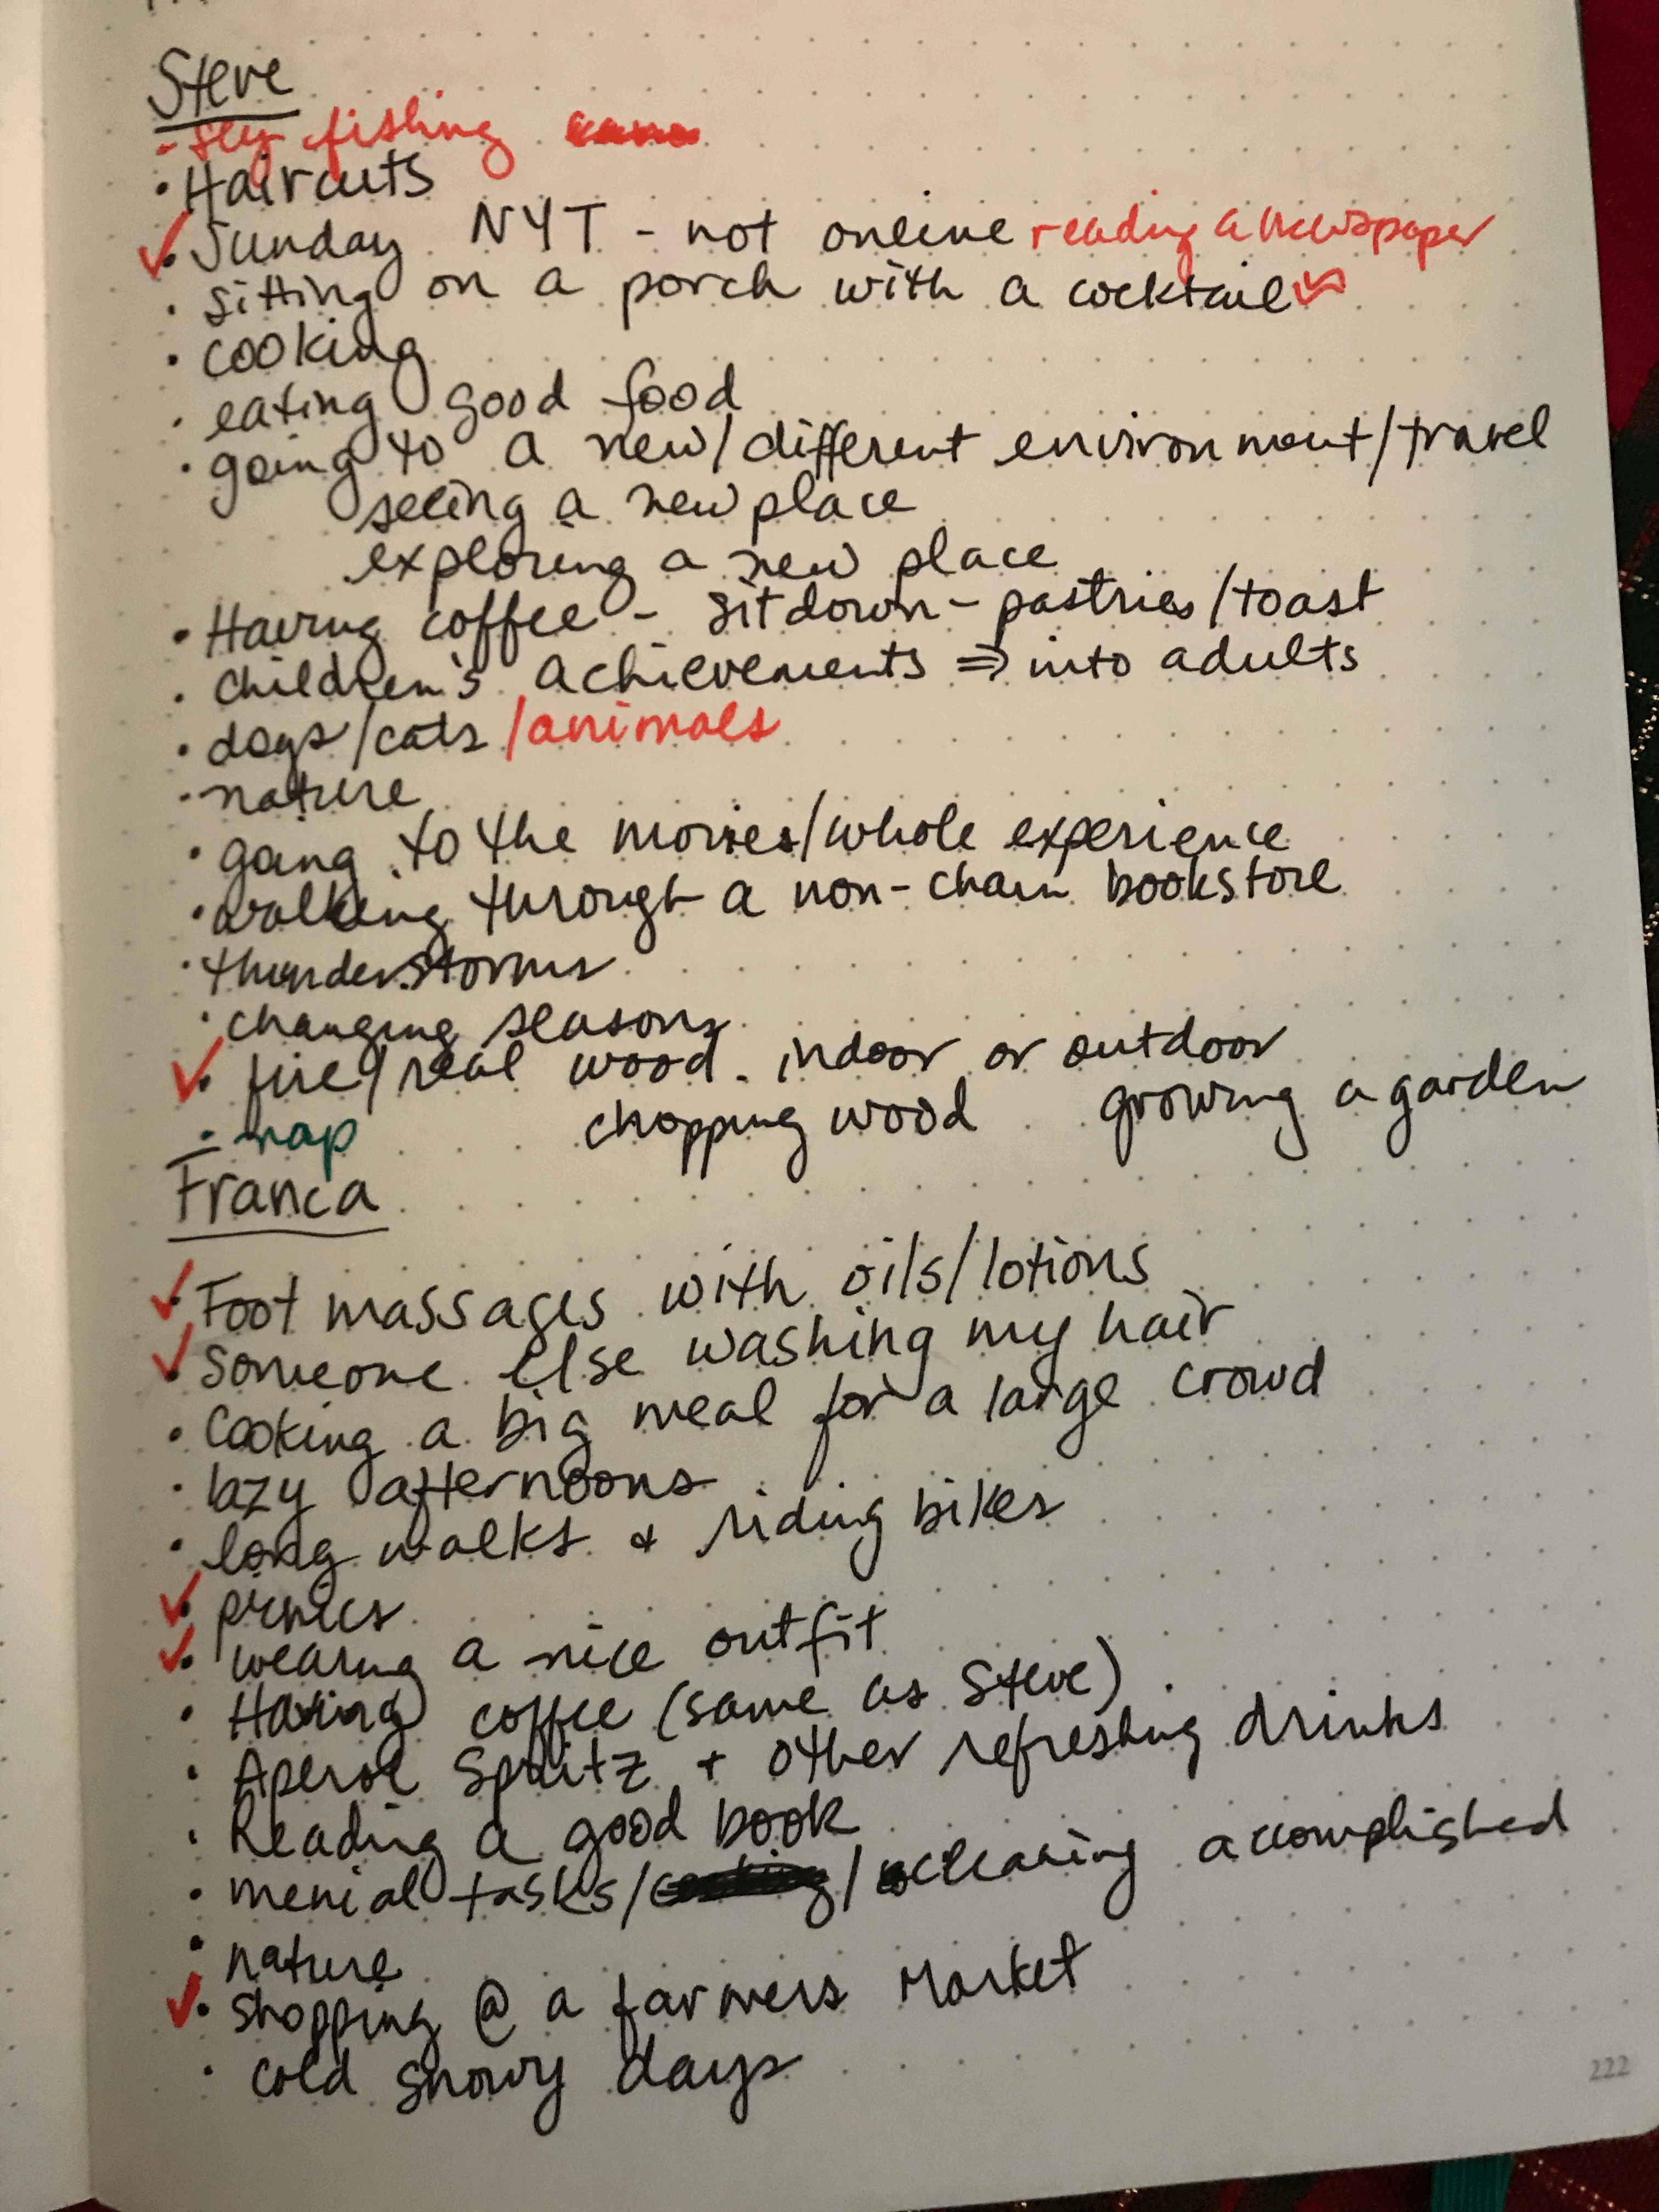 Steve
- fly fishing
• Haircuts
✓• Sunday NYT - not online reading a newspaper
• sitting on a porch with a cocktail
• cooking
• eating good food
• going to a new/different environment/travel
seeing a new place
exploring a new place
• Having coffee - sitdown - pastries/toast
• children's achievements ⇒ into adults
• dogs/cats/animals
• nature
• going to the movies/whole experience
• walking through a non-chain bookstore
• thunderstorms
• changing seasons
✓• fire/real wood - indoor or outdoor
- • nap chopping wood growing a garden
Franca
✓• Foot massages with oils/lotions
✓• someone else washing my hair
• Cooking a big meal for a large crowd
• lazy afternoons
• long walks + riding bikes
✓• picnics
✓• wearing a nice outfit
• Having coffee (same as Steve)
• Aperol Spritz + other refreshing drinks
• Reading a good book
• menial tasks/ /cleaning accomplished
• nature
✓• shopping @ a farmers market
• cold snowy days
222